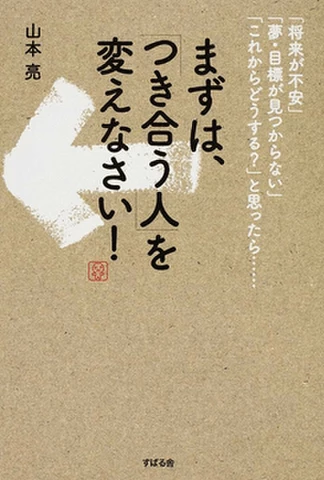 「将来が不安」
「夢・目標が見つからない」
「これからどうする？」と思ったら……
まずは、
「つき合う人」を
変えなさい！
山本 亮
すばる舎